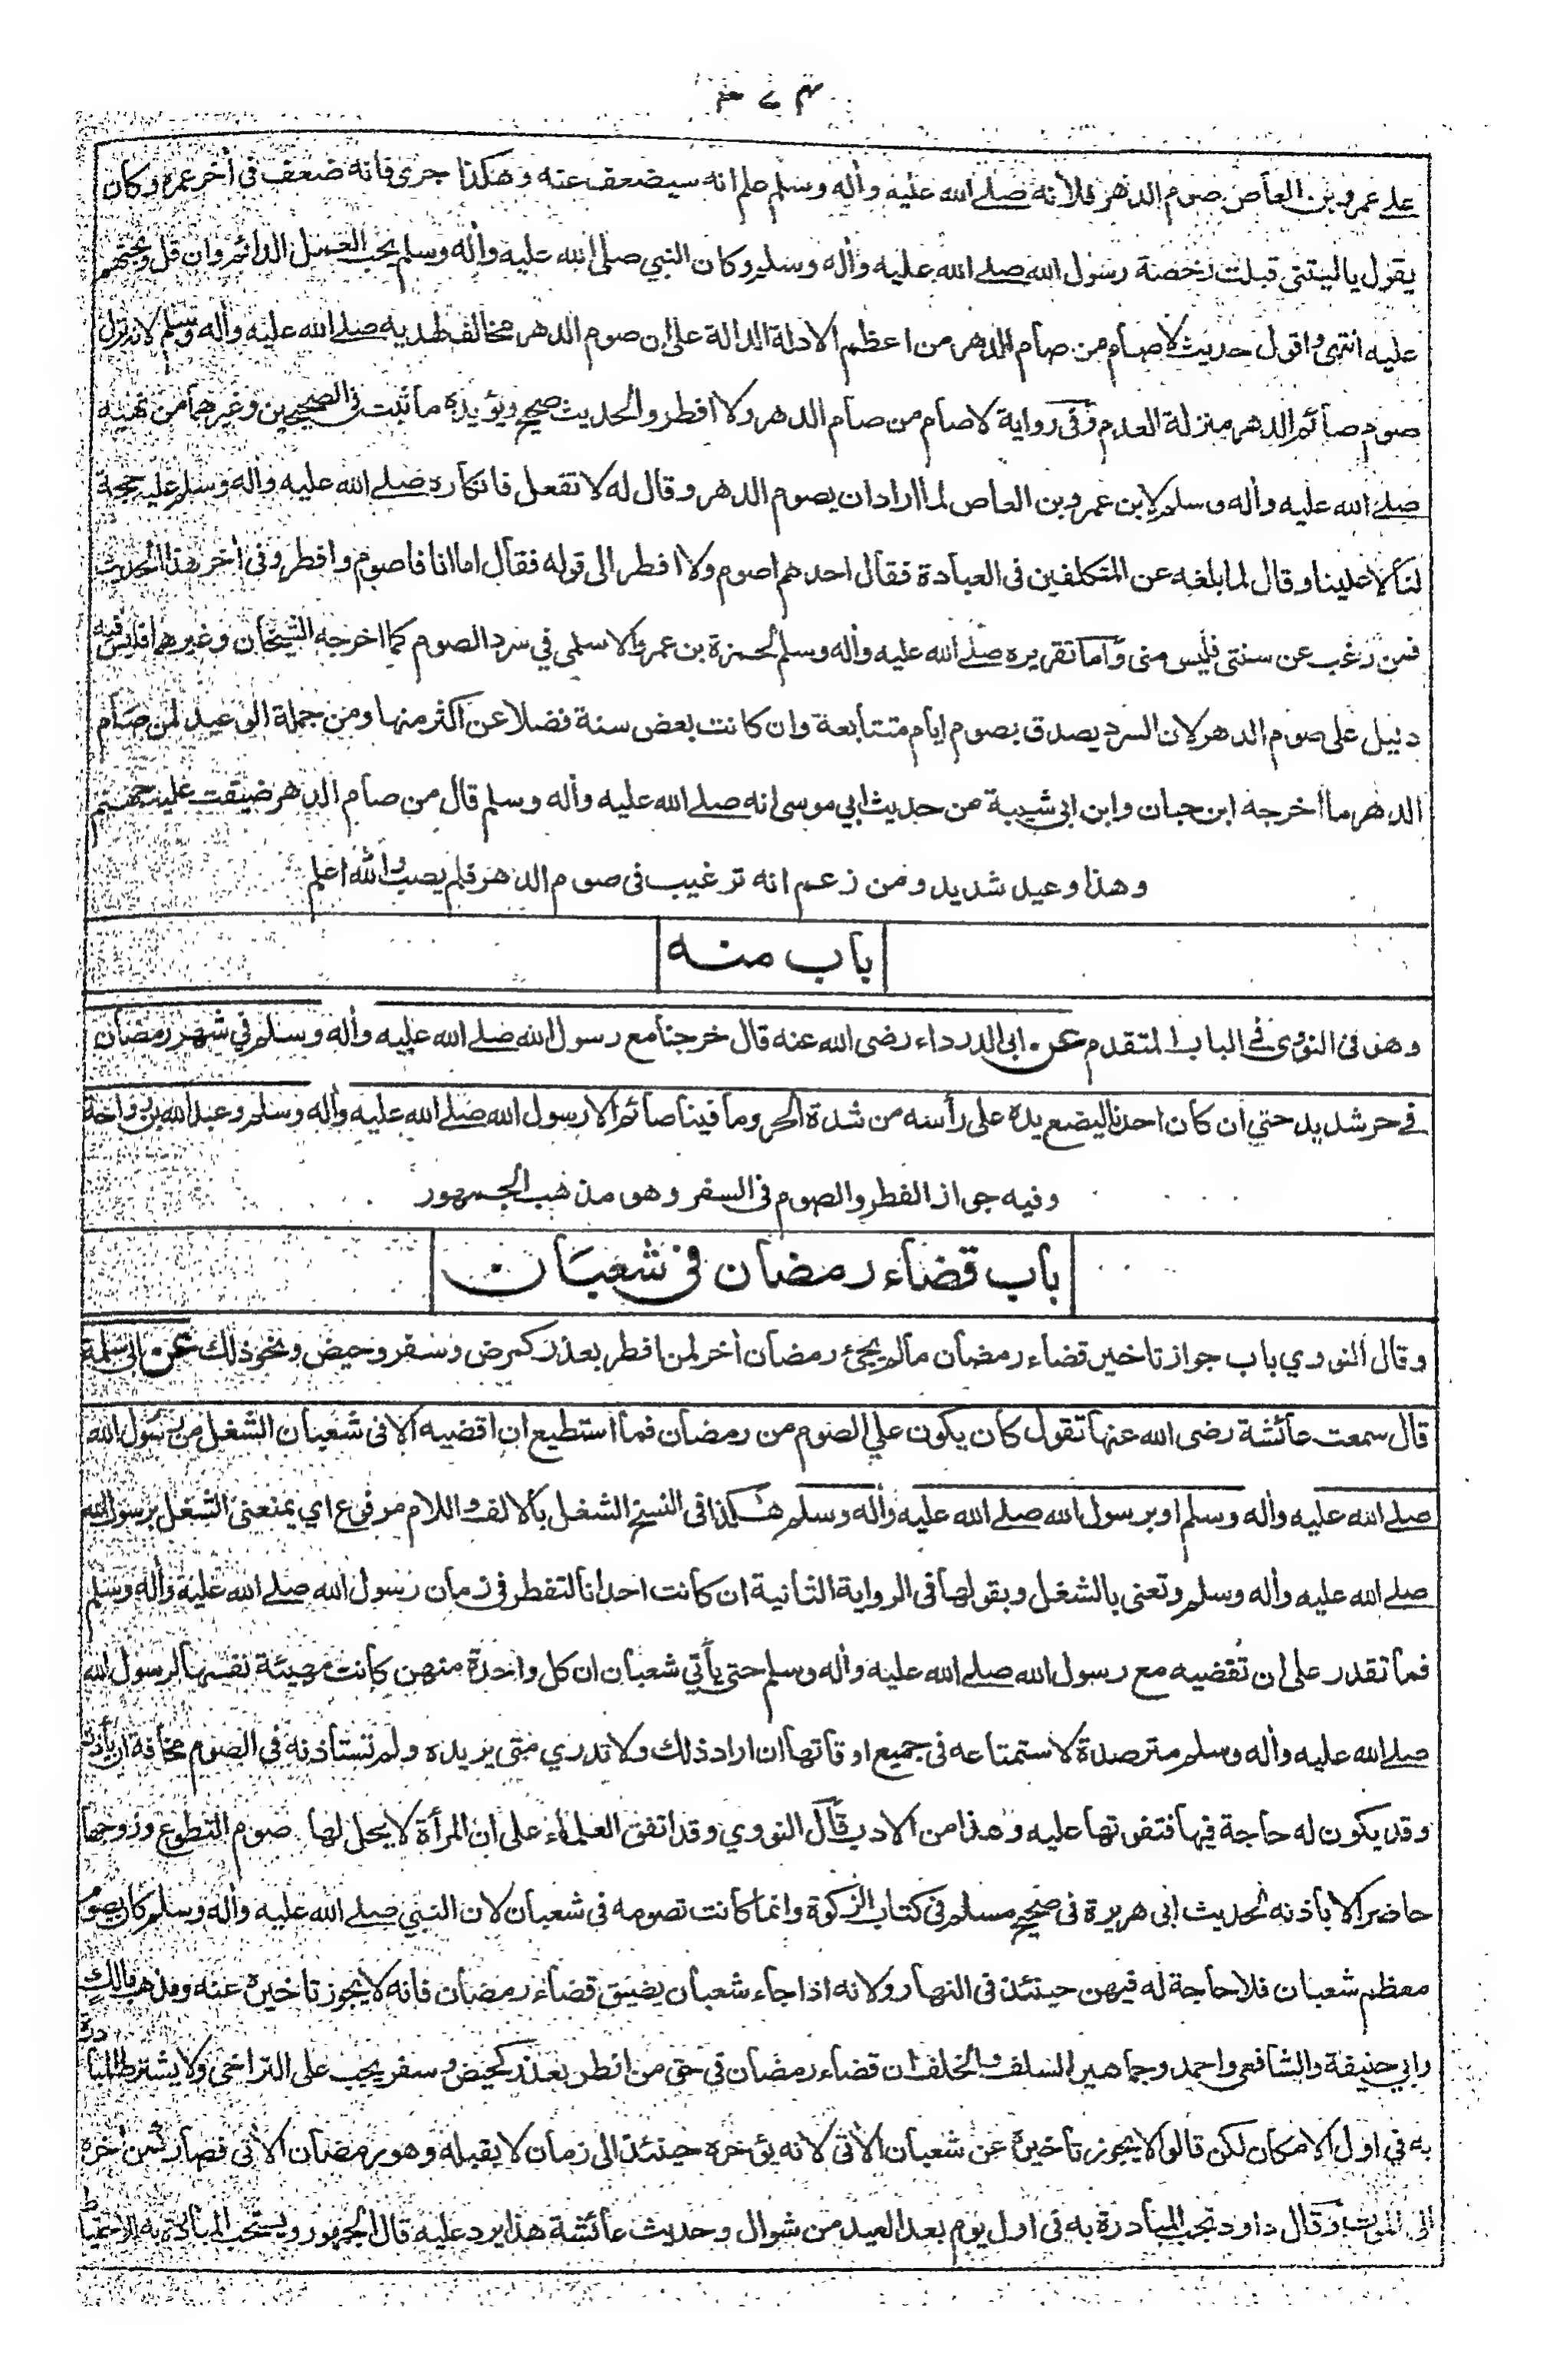 ٤٧٣
علے عمرو بن العاص صوم الدهر فلأنه صلے الله عليه وأله وسلم علم انه سيضعف عنه وهكذا جرى فانه ضعف فى أخر عمره وكان
يقول ياليتنى قبلت رخصة رسول الله صلے الله عليه وأله وسلم وكان النبي صلى الله عليه وأله وسلم يحب العمل الدائم وان قل ويحثهم
عليه انتهى واقول حديث لاصام من صام الدهر من اعظم الادلة الدالة على ان صوم الدهر مخالف لهديه صلے الله عليه وأله وسلم لانه نزل
صوم صائم الدهر منزلة العدم وفى رواية لاصام من صام الدهر ولا افطر والحديث صحيح ويؤيده ما ثبت فى الصحيحين وغيرهما من نهيه
صلے الله عليه وأله وسلم لابن عمرو بن العاص لما اراد ان يصوم الدهر وقال له لا تفعل فانكاره صلے الله عليه وأله وسلم عليه حجة
لنا لا علينا وقال لما بلغه عن المتكلفين فى العبادة فقال احدهم اصوم ولا افطر الى قوله فقال اما انا فاصوم وافطر وفى أخر هذا الحديث
فمن رغب عن سنتى فليس منى واما تقريره صلے الله عليه وأله وسلم لحمزة بن عمرو الاسلمي في سرد الصوم كما اخرجه الشيخان وغيرهما فليس فيه
دليل على صوم الدهر لان السرد يصدق بصوم ايام متتابعة وان كانت بعض سنة فضلا عن اكثر منها ومن جملة الوعيد لمن صام
الدهر ما اخرجه ابن حبان وابن ابى شيبة من حديث ابي موسى انه صلے الله عليه وأله وسلم قال من صام الدهر ضيقت عليه جهنم
وهذا وعيد شديد ومن زعم انه ترغيب فى صوم الدهر فلم يصب والله اعلم
باب منه
وهو فى النووى فے الباب المتقدم عن ابى الدرداء رضى الله عنه قال خرجنا مع رسول الله صلے الله عليه وأله وسلم في شهر رمضان
فے حر شديد حتي ان كان احدنا ليضع يده على رأسه من شدة الحر وما فينا صائم الا رسول الله صلے الله عليه وأله وسلم وعبد الله بن رواحة
وفيه جواز الفطر والصوم فى السفر وهو مذهب الجمهور
باب قضاء رمضان فى شعبان
وقال النووي باب جواز تاخير قضاء رمضان مالم يجئ رمضان أخر لمن افطر بعذر كمرض وسفر وحيض ونحو ذلك عن ابى سلمة
قال سمعت عائشة رضى الله عنها تقول كان يكون علي الصوم من رمضان فما استطيع ان اقضيه الا فى شعبان الشغل من رسول الله
صلے الله عليه وأله وسلم او برسول الله صلے الله عليه وأله وسلم هكذا فى النسخ الشغل بالالف واللام مرفوع اي يمنعنى الشغل برسول الله
صلے الله عليه وأله وسلم وتعنى بالشغل وبقولها فى الرواية الثانية ان كانت احدانا لتفطر فى زمان رسول الله صلے الله عليه وأله وسلم
فما تقدر على ان تقضيه مع رسول الله صلے الله عليه وأله وسلم حتى يأتي شعبان ان كل واحدة منهن كانت مهيئة نفسها لرسول الله
صلے الله عليه وأله وسلم مترصدة لاستمتاعه فى جميع اوقاتها ان اراد ذلك ولا تدري متى يريده ولم تستأذنه فى الصوم مخافة ان يأذن
وقد يكون له حاجة فيها فتفوتها عليه وهذا من الادب قال النووي وقد اتفق العلماء على ان المرأة لا يحل لها صوم التطوع وزوجها
حاضر الا باذنه لحديث ابى هريرة فى صحيح مسلم فى كتاب الزكوة وانما كانت تصومه في شعبان لان النبي صلے الله عليه وأله وسلم كان يصوم
معظم شعبان فلا حاجة له فيهن حينئذ فى النهار ولانه اذا جاء شعبان يضيق قضاء رمضان فانه لا يجوز تاخيره عنه ومذهب مالك
وابي حنيفة والشافعي واحمد وجماهير السلف والخلف ان قضاء رمضان فى حق من افطر بعذر كحيض وسفر يجب على التراخى ولا يشترط المبادرة
به في اول الامكان لكن قالوا لا يجوز تاخيره عن شعبان الأتى لانه يؤخره حينئذ الى زمان لا يقبله وهو رمضان الأتى فصار كمن أخره
الى الموت وقال داود تجب المبادرة به فى اول يوم بعد العيد من شوال وحديث عائشة هذا يرد عليه قال الجمهور ويستحب المبادرة به للاحتياط